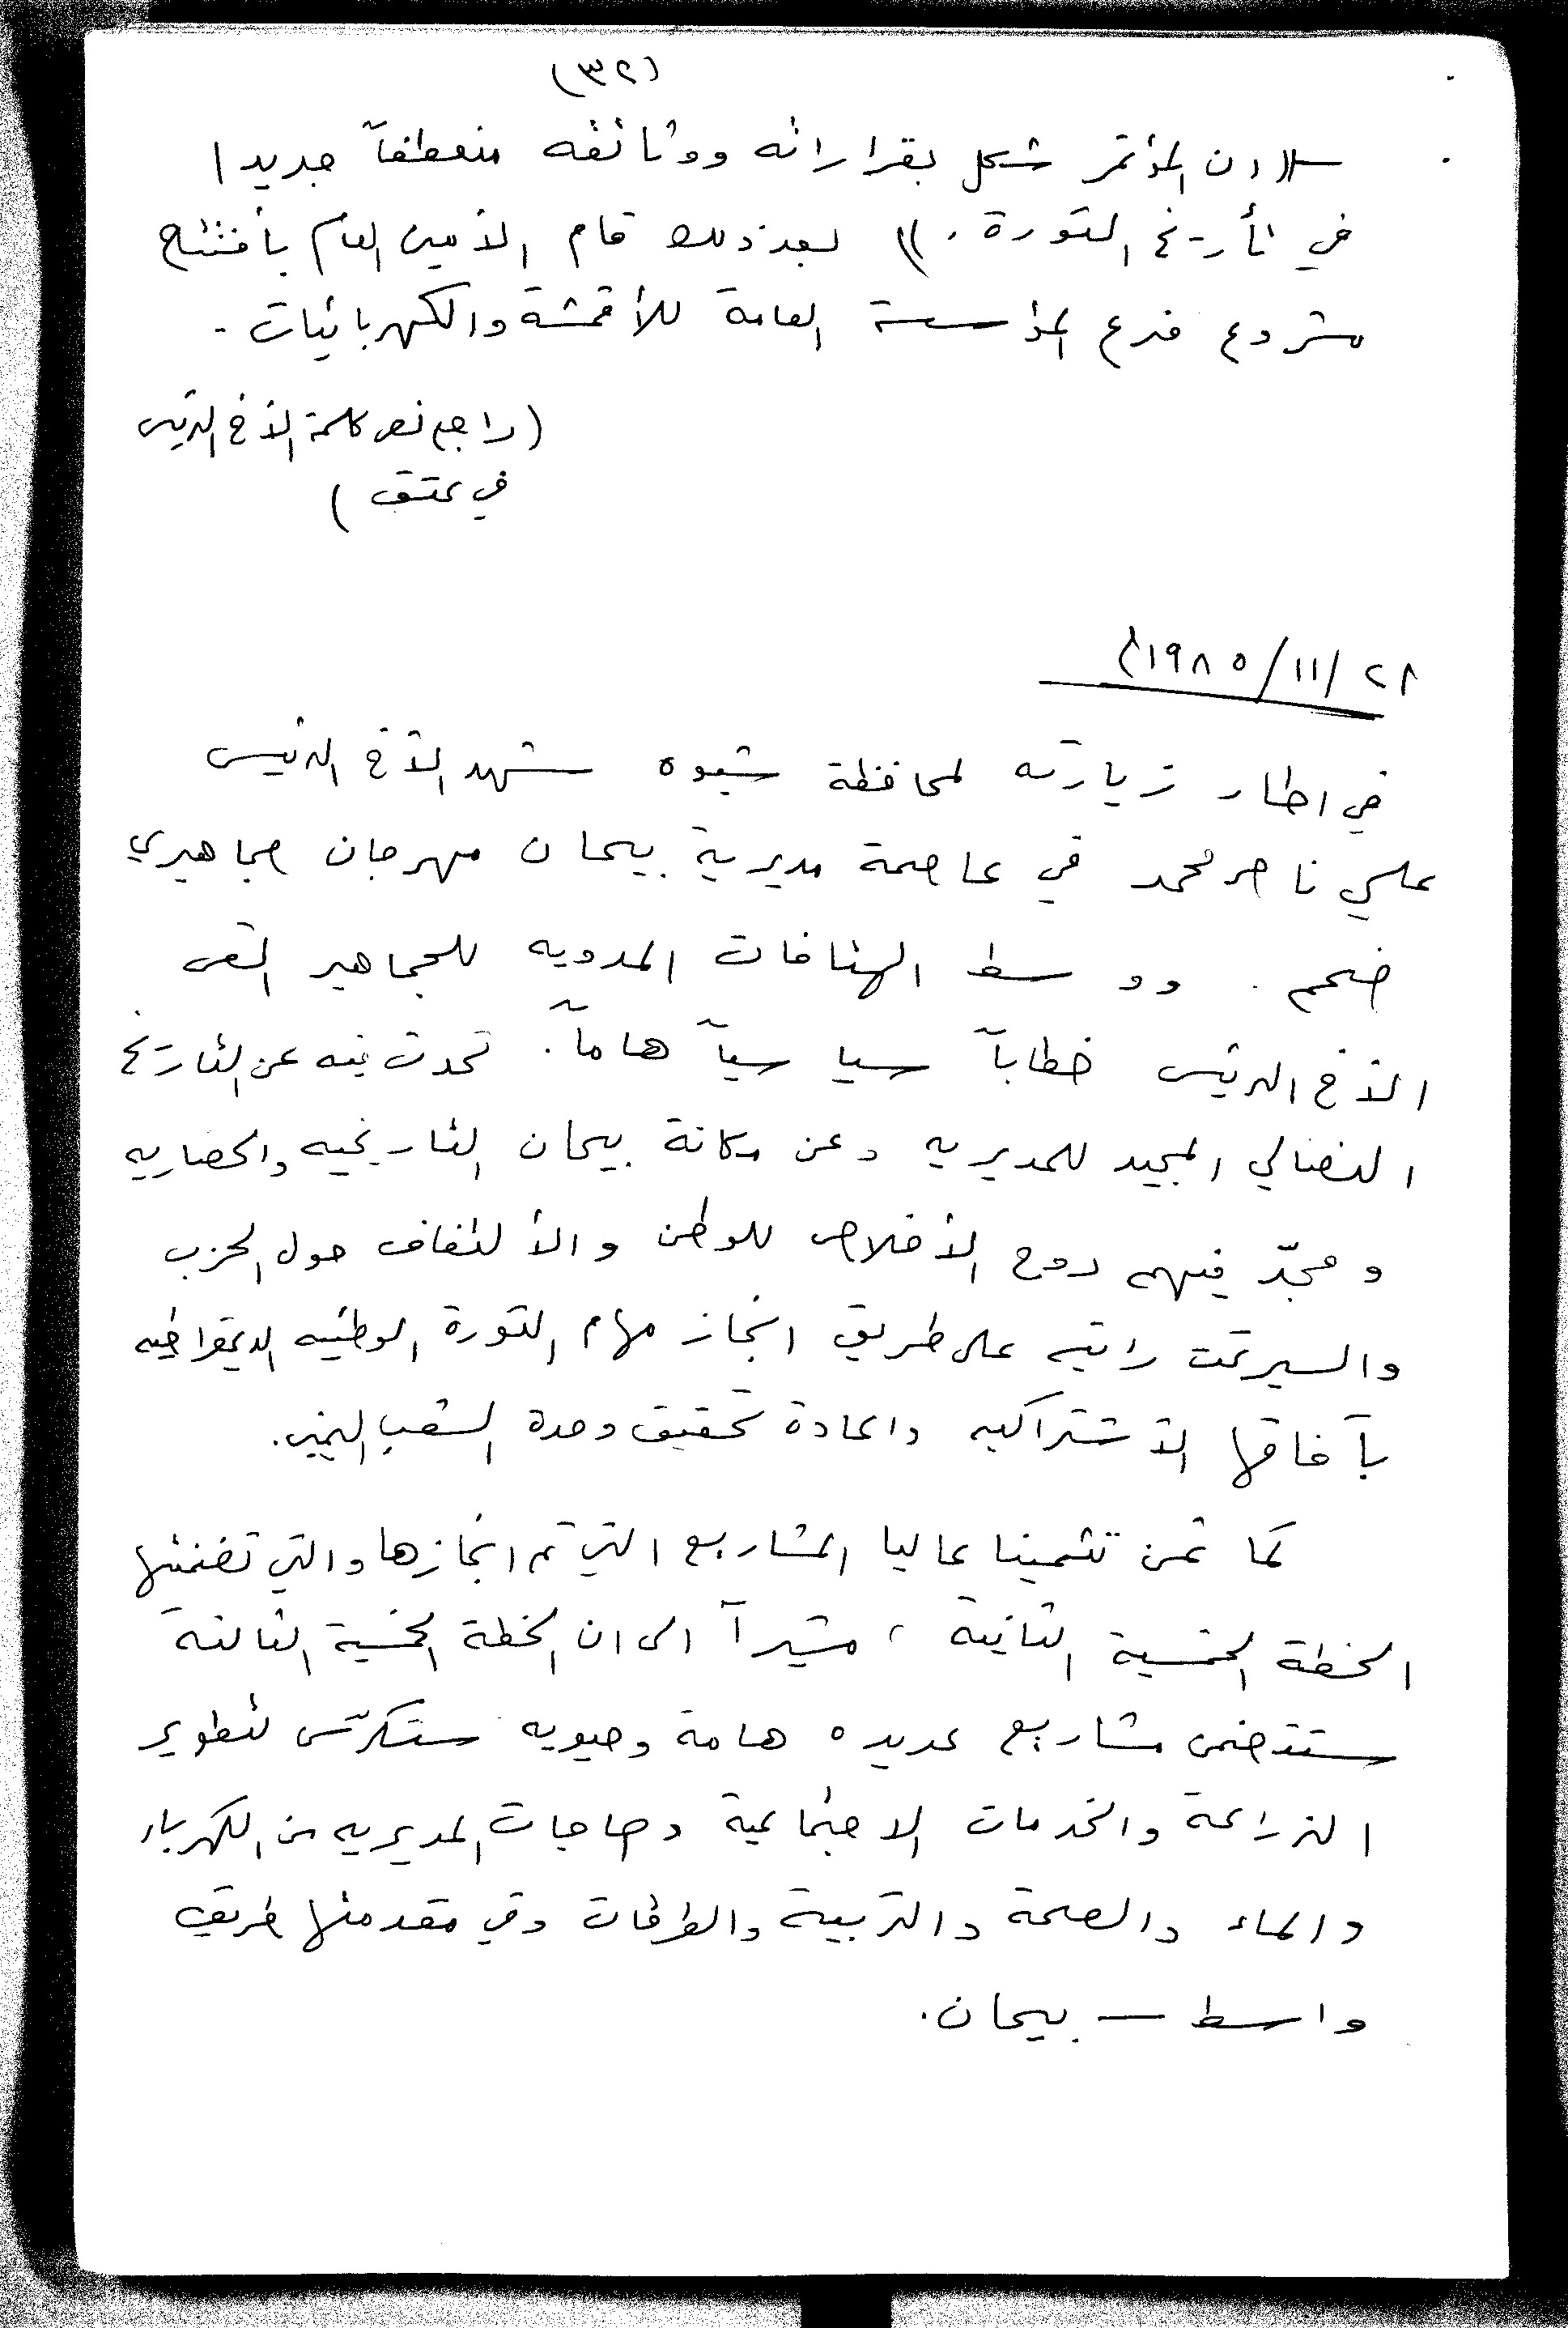 (٣٢)
ان المؤتمر شكل بقراراته ووثائقه منعطفآ جديدا
في تأريخ الثورة . )) بعد ذلك قام الأمين العام بأفتتاح
مشروع فرع المؤسسة العامة للأقمشة والكهربائيات -
(راجع نص كلمة الأخ الرئيس
في عتق )
٢٨/١١/١٩٨٥م
في اطار زيارته لمحافظة شبوه شهد الأخ الرئيس
علي ناصر محمد في عاصمة مديرية بيحان مهرجان جماهيري
ضخم . ووسط الهتافات المدويه للجماهير القى
الأخ الرئيس خطابآ سياسيآ هامآ . تحدث فيه عن التاريخ
النضالي المجيد للمديريه وعن مكانة بيحان التاريخيه والحضاريه
و مجّد فيهم روح الأخلاص للوطن والألتفاف حول الحزب
والسير تحت رايته على طريق انجاز مهام الثورة الوطنيه الديمقراطيه
بآفاقها الأشتراكيه واعادة تحقيق وحدة الشعب اليمني.
كما ثمن تثمينا عاليا المشاريع التي تم انجازها والتي تضمنتها
الخطة الخمسية الثانية ، مشيرآ الى ان الخطة الخمسية الثالثة
ستتضمن مشاريع عديده هامة وحيويه ستكرّس لتطوير
الزراعة والخدمات الاجتماعية وحاجات المديريه من الكهرباء
والماء والصحة والتربية والطرقات وفي مقدمتها طريق
واسط — بيحان.